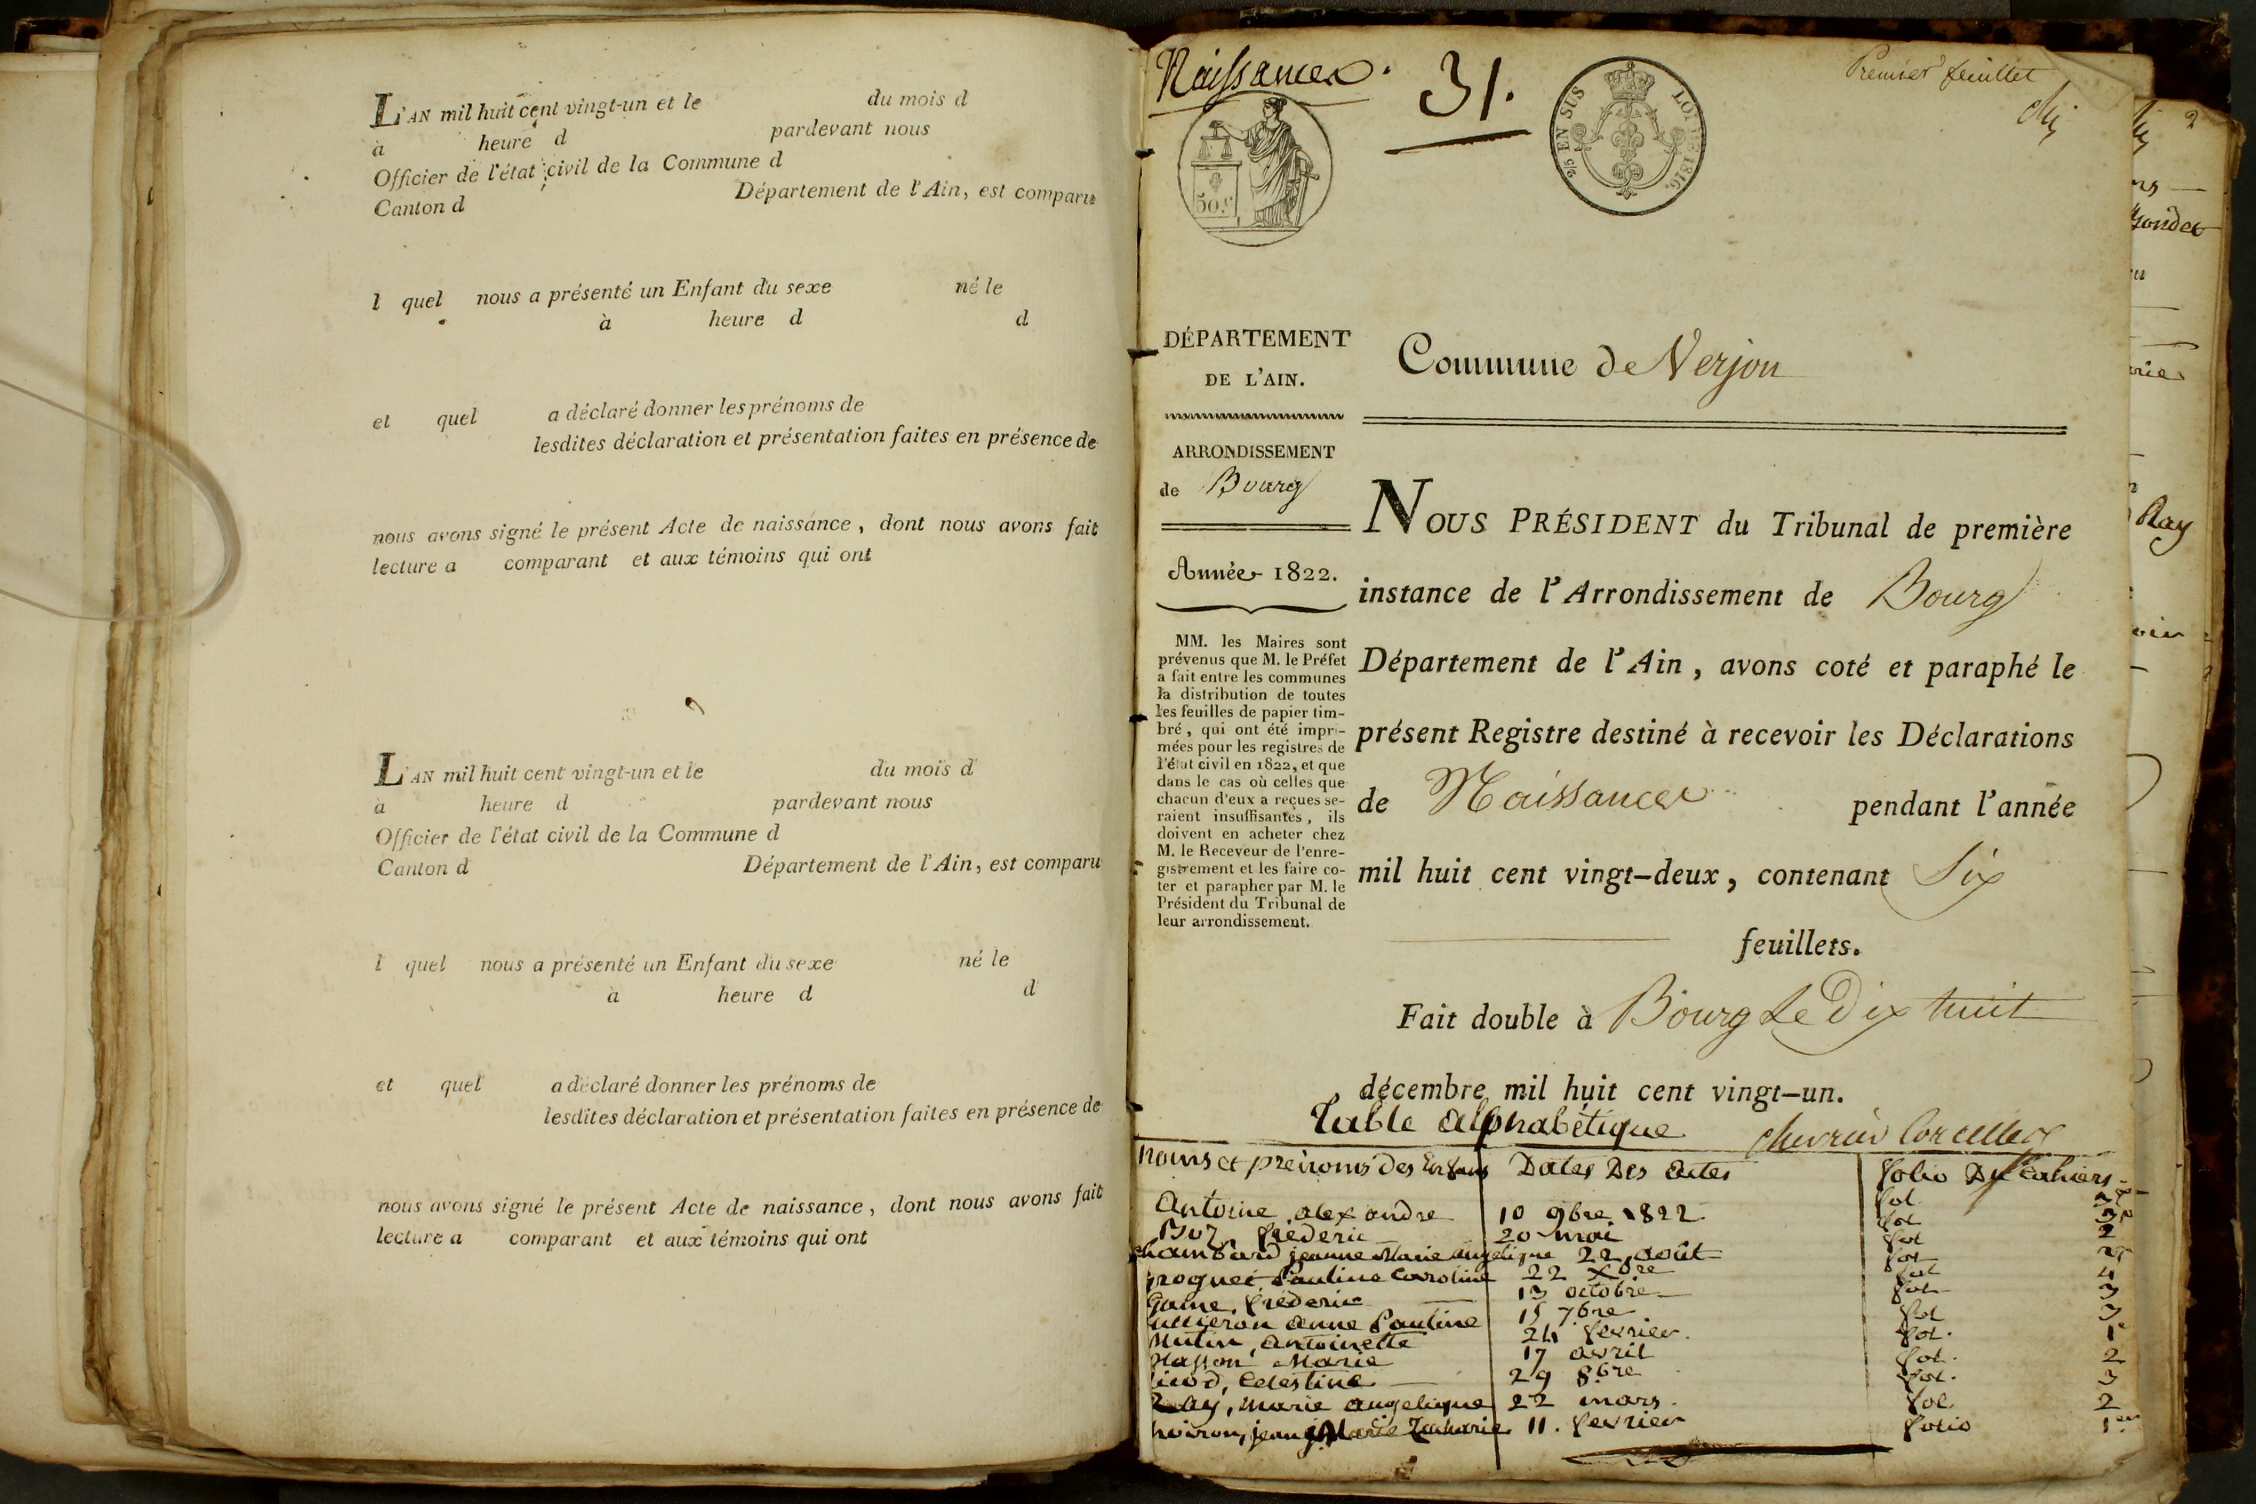 L'AN mil huit cent vingt-un et le du mois d
à heure d pardevant nous
Officier de l'état civil de la Commune d
Canton d Département de l'Ain, est comparu
l quel nous a présenté un Enfant du sexe né le
à heure d d
et quel a déclaré donner les prénoms de
lesdites déclaration et présentation faites en présence de
nous avons signé le présent Acte de naissance, dont nous avons fait
lecture a comparant et aux témoins qui ont
L'AN mil huit cent vingt-un et le du mois d
à heure d pardevant nous
Officier de l'état civil de la Commune d
Canton d Département de l'Ain, est comparu
l quel nous a présenté un Enfant du sexe né le
à heure d d
et quel a déclaré donner les prénoms de
lesdites déclaration et présentation faites en présence de
nous avons signé le présent Acte de naissance, dont nous avons fait
lecture a comparant et aux témoins qui ont
Naissances. 31. Premier feuillet
50.c
EN SUS LOI DE 1816.
DÉPARTEMENT
DE L'AIN.
Commune de Verjon
ARRONDISSEMENT
de Bourg
Année 1822.
MM. les Maires sont
prévenus que M. le Préfet
a fait entre les communes
la distribution de toutes
les feuilles de papier tim-
bré, qui ont été impri-
mées pour les registres de
l'état civil en 1822, et que
dans le cas où celles que
chacun d'eux a reçues se-
raient insuffisantes, ils
doivent en acheter chez
M. le Receveur de l'enre-
gistrement et les faire co-
ter et parapher par M. le
Président du Tribunal de
leur arrondissement.
NOUS PRÉSIDENT du Tribunal de première
instance de l'Arrondissement de Bourg
Département de l'Ain, avons coté et paraphé le
présent Registre destiné à recevoir les Déclarations
de Naissances pendant l'année
mil huit cent vingt-deux, contenant Six
feuillets.
Fait double à Bourg Le Dix huit
décembre mil huit cent vingt-un.
Table alphabétique chevrier Corcelles
noms et prénoms des Enfans Dates Des actes folio Des cahiers
Antoine, alexandre 10 9bre 1822 fol
Boz, frédéric 20 mai fol 2
Chambard jeanne Marie angelique 22 août fol
froguet Pauline Caroline 22 Xbre fol 4
Game, frédéric 13 octobre fol 3
anne Pauline 15 7bre fol 3
Mutin, antoinette 24 fevrier. fol. 1
Masson Marie 17 avril fol. 2
Celestine 29 8bre fol. 3
Ray, Marie angelique 22 mars. fol. 2
jean Marie Zacharie 11. fevrier folio 1.er
2
Ray